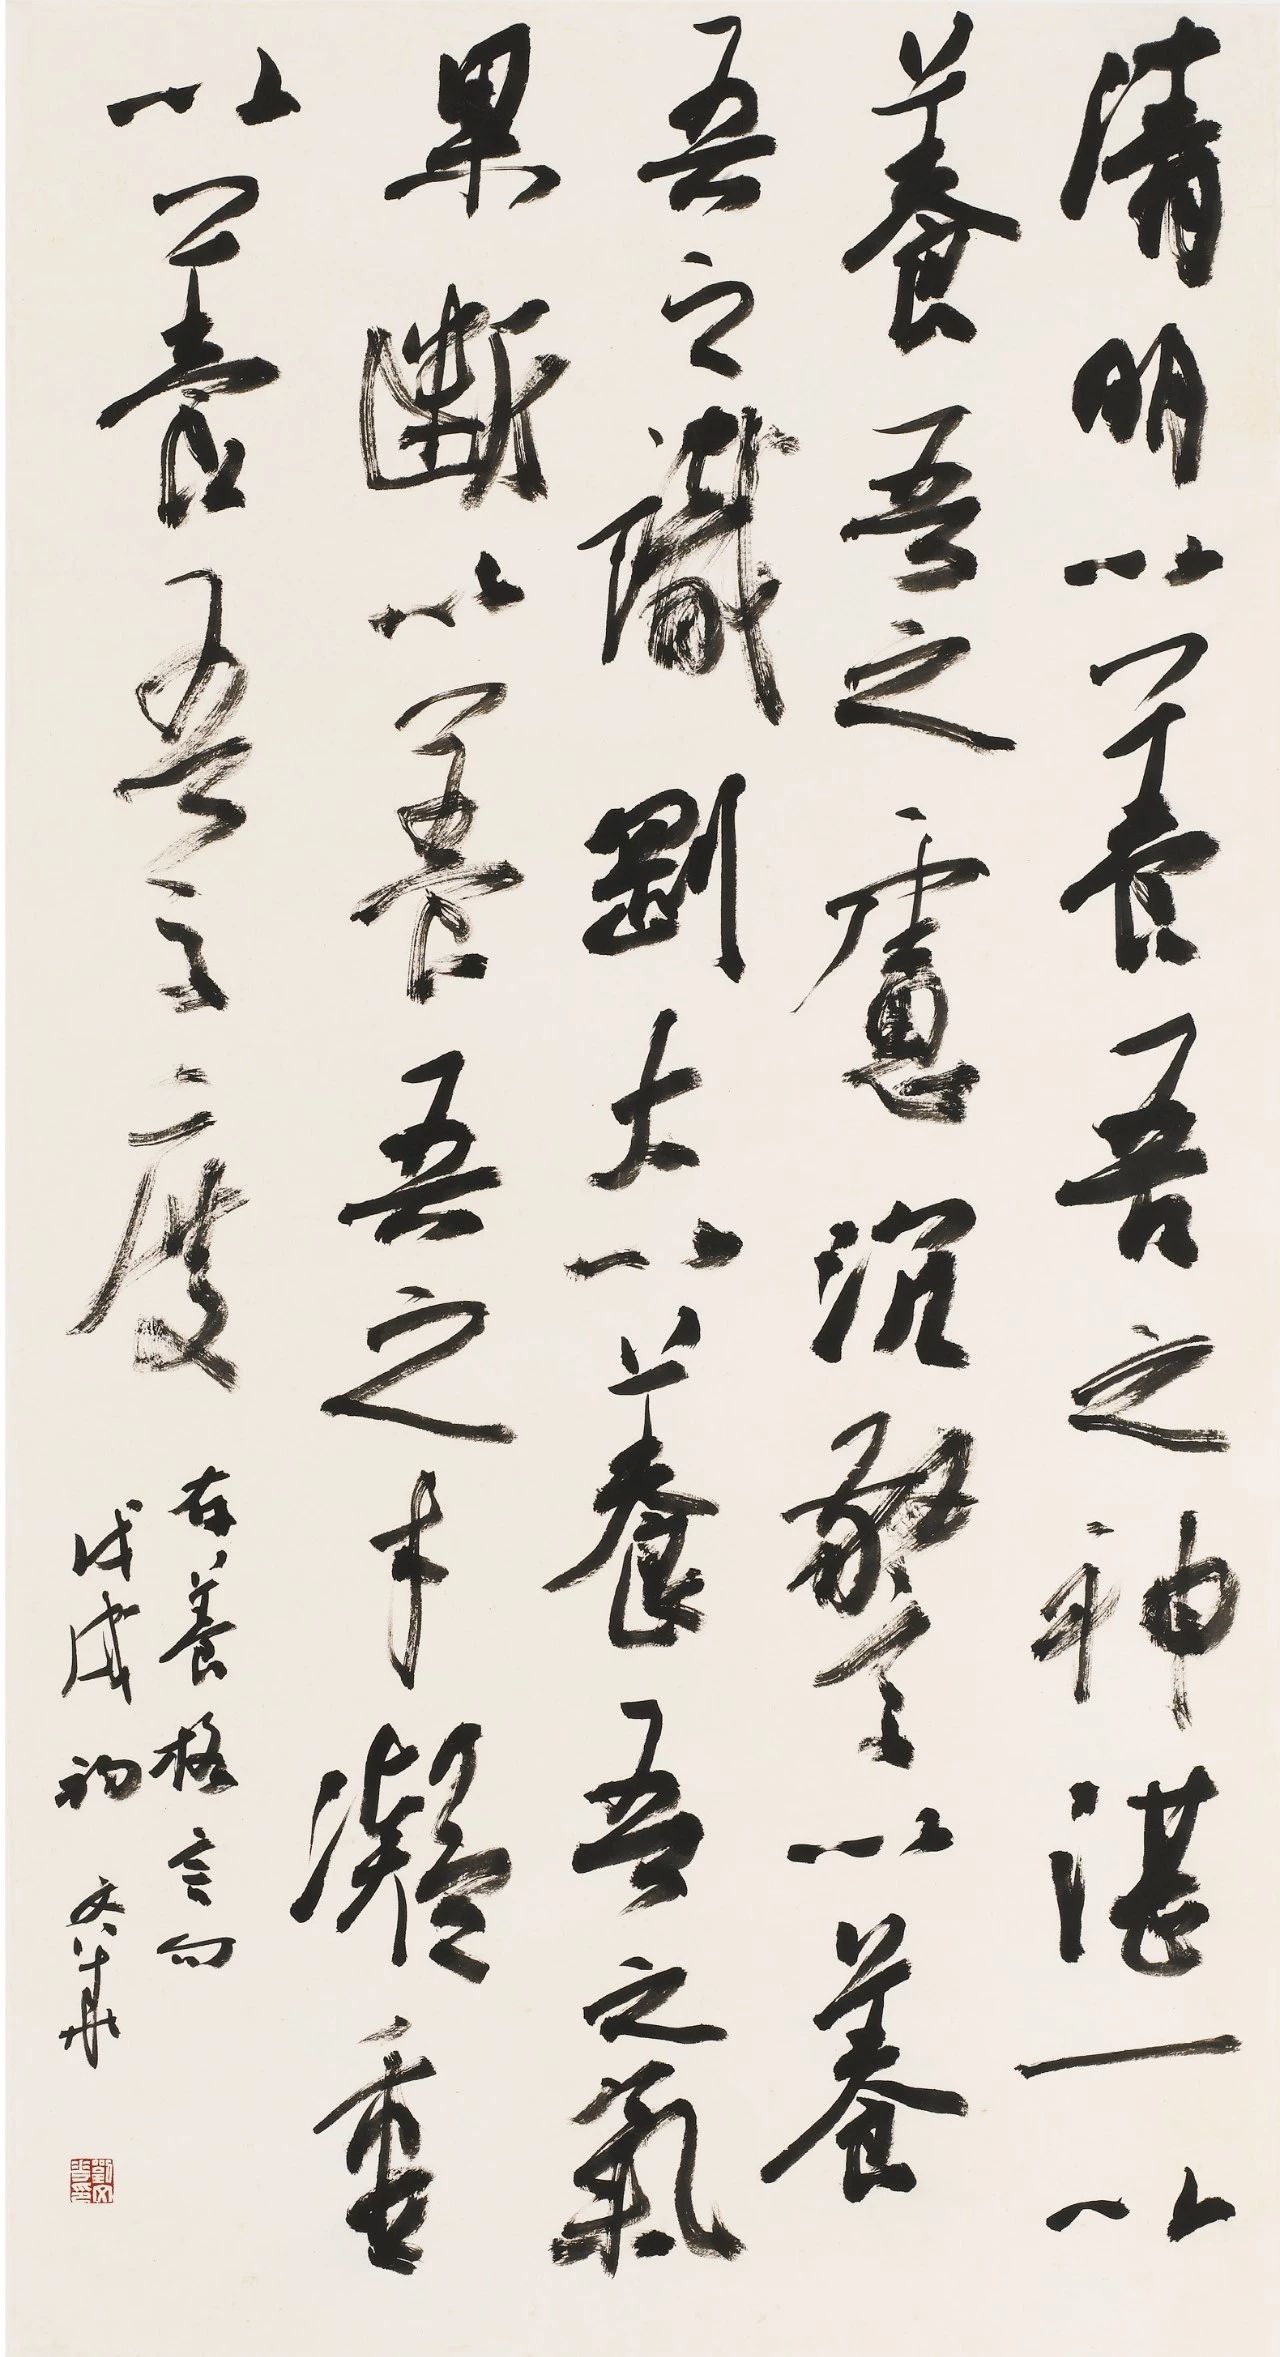 清明以養吾之神湛一以
養吾之慮沉警以養
吾之識剛大以養吾之氣
果斷以養吾之才凝重
以養吾之度
存養格言句
戊戌初文華
劉文華印